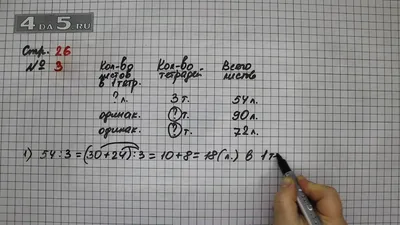 4DA5.RU
Стр. 26
№ 3
Кол-во листов в 1 тетр.
Кол-во тетрадей
Всего листов
? л. 3 т. 54 л.
одинак. ? т. 90 л.
одинак. ? т. 72 л.
1) 54 : 3 = (30 + 24) : 3 = 10 + 8 = 18 (л.) в 1 т